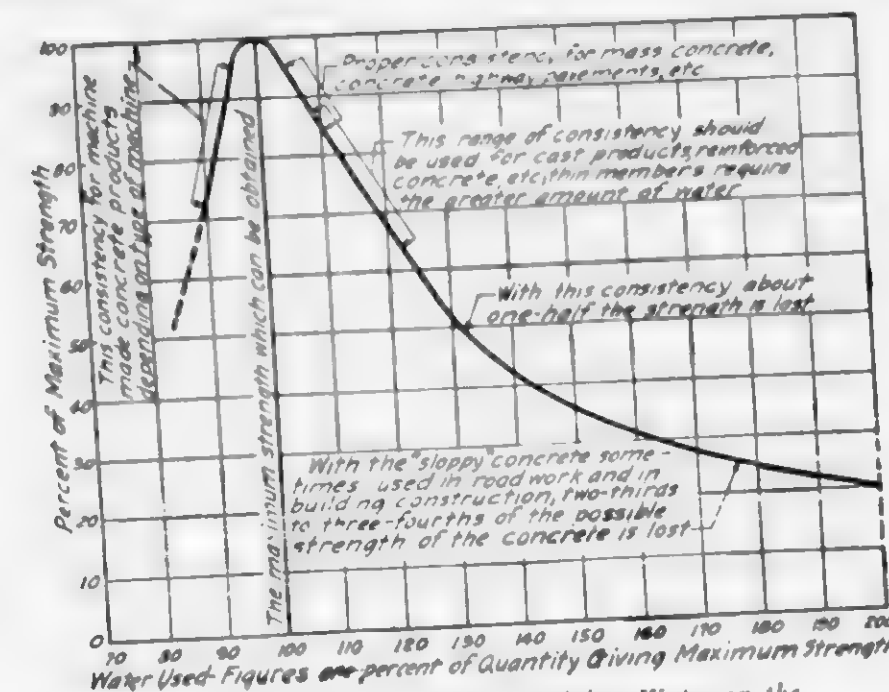 100
90
80
70
60
50
40
30
20
10
0
Percent of Maximum Strength
This consistency for machine
made concrete products
depending on type of machine
The maximum strength which can be obtained
Proper consistency for mass concrete,
concrete highway pavements, etc
This range of consistency should
be used for cast products, reinforced
concrete, etc, thin members require
the greater amount of water
With this consistency about
one-half the strength is lost
With the "sloppy" concrete some-
times used in road work and in
building construction, two-thirds
to three-fourths of the possible
strength of the concrete is lost
70 80 90 100 110 120 130 140 150 160 170 180 190 200
Water Used-Figures are percent of Quantity Giving Maximum Strength
Water on the